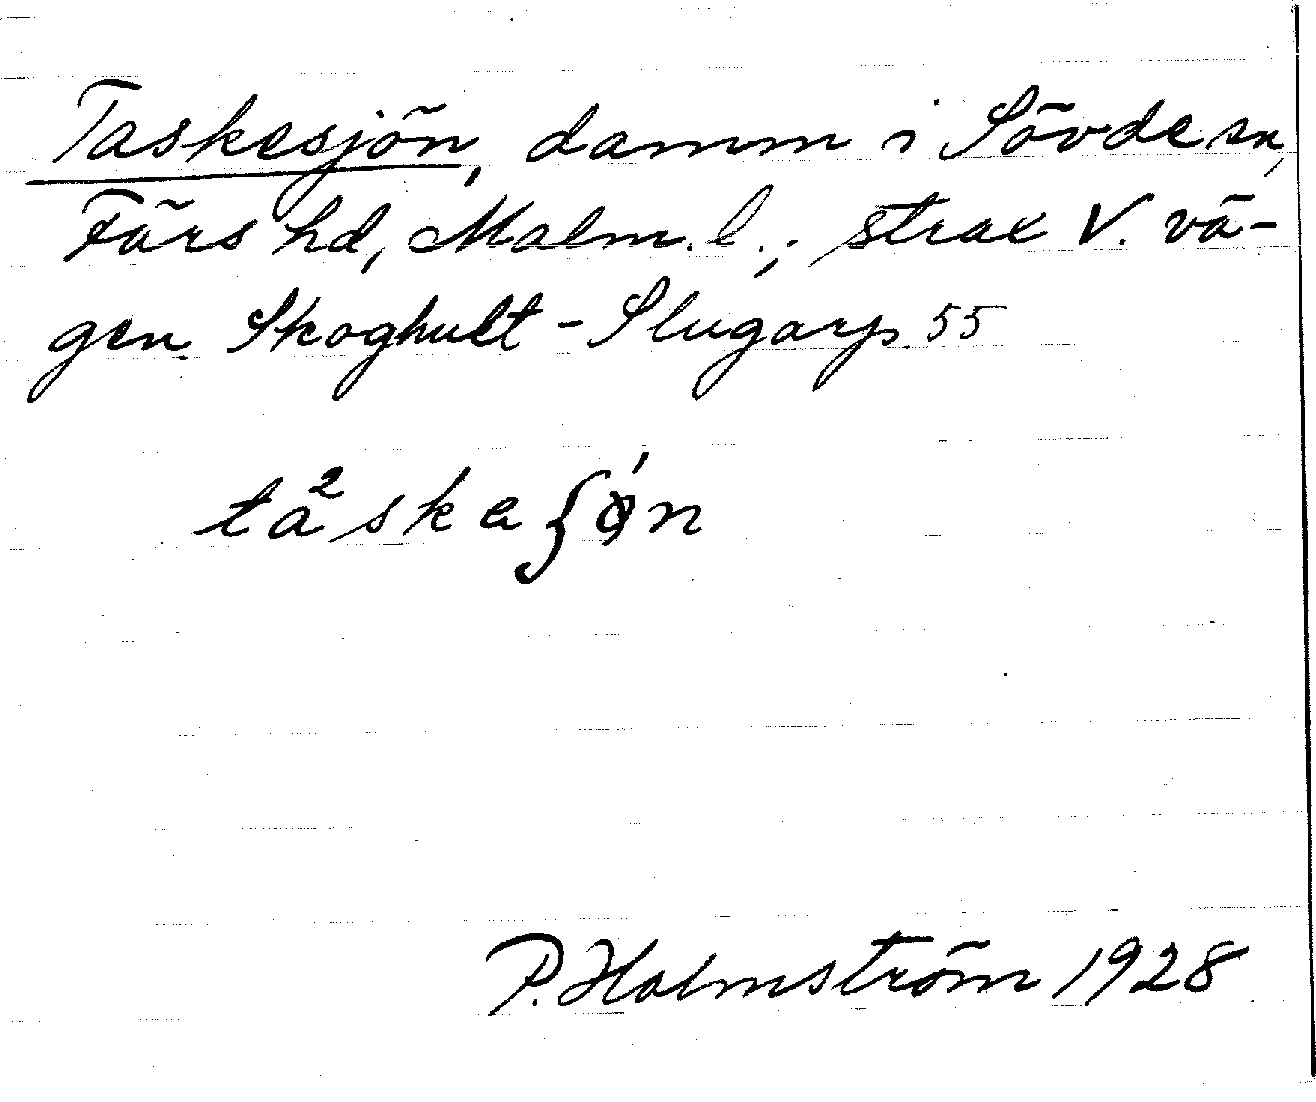 Taskesjön, damm i Sövde sn,
Färs hd, Malm. l.; strax V. vä-
gen Skoghult - Slugarp 55
P. Holmström 1928